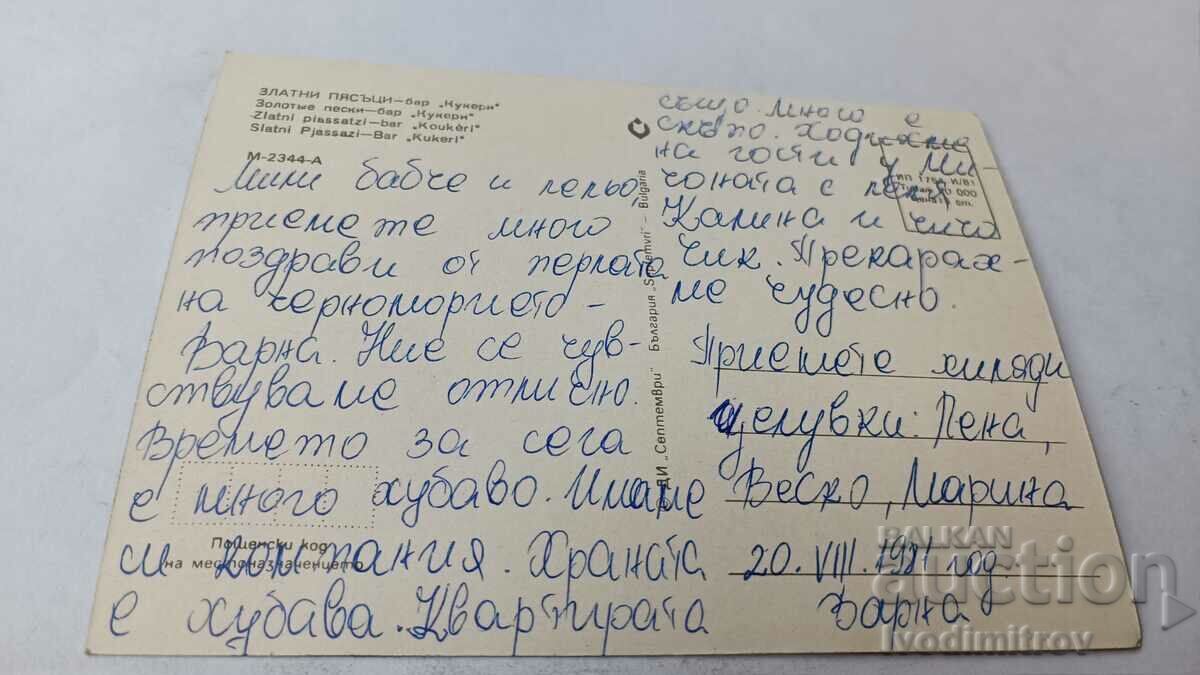 ЗЛАТНИ ПЯСЪЦИ—бар „Кукери"
Золотые пески—бар „Кукери"
Zlatni piassatzi—bar „Koukéri"
Slatni Pjassazi—Bar „Kukeri"
М-2344-А
Мили бабче и
приемете много
поздрави от перлата
на черноморието -
Варна. Ние се чув-
ствуваме отлично.
Времето за сега
е много хубаво. Имаме
си компания. Храната
е хубава. Квартирата
също. Много е
скъпо. Ходихме
на гости у Ми
чоната с леля
Калина и чичо
Чик. Прекарах-
ме чудесно.
Приемете хиляди
целувки: Пена,
Веско, Марина
20. VIII. 1981 год.
Варна
Пощенски код
на местоназначението
ДИ „Септември" България „Septemvri" — Bulgaria
BALKAN
auction
ivodimitrov